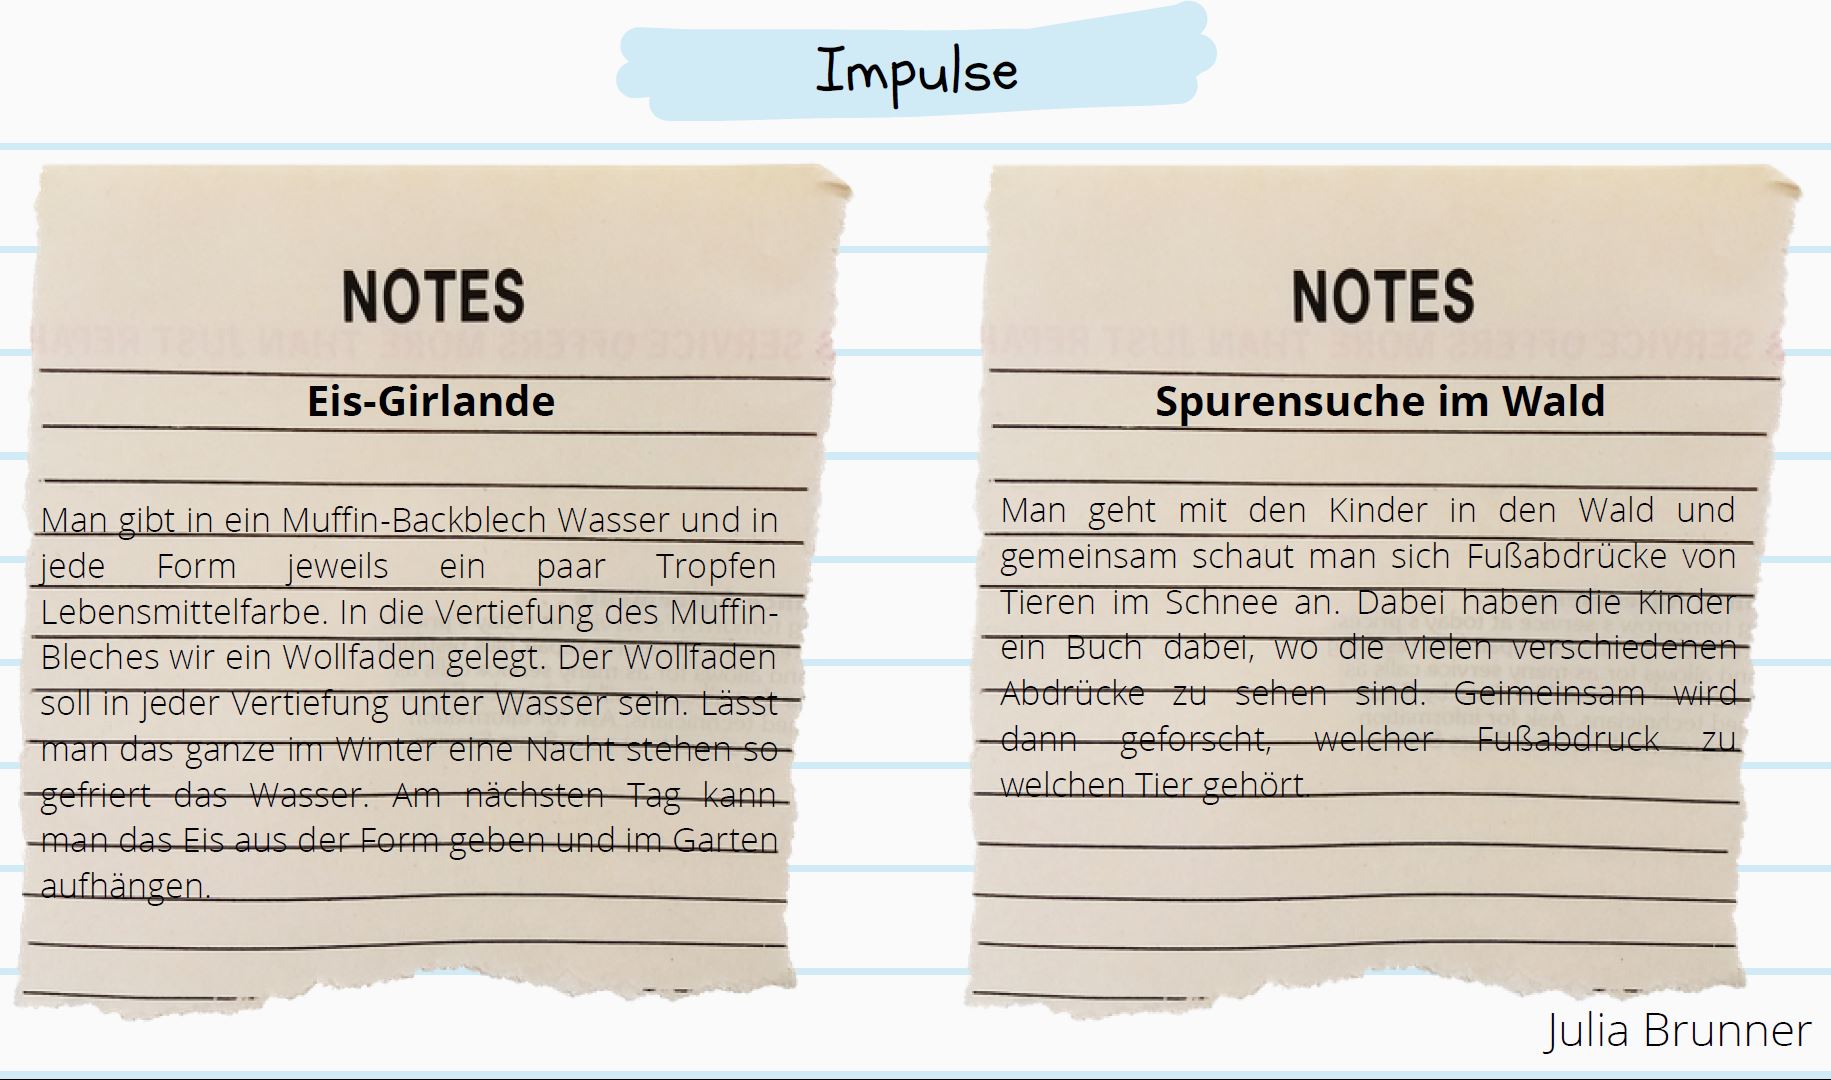 Impulse
NOTES
Eis-Girlande
Man gibt in ein Muffin-Backblech Wasser und in
jede Form jeweils ein paar Tropfen
Lebensmittelfarbe. In die Vertiefung des Muffin-
Bleches wir ein Wollfaden gelegt. Der Wollfaden
soll in jeder Vertiefung unter Wasser sein. Lässt
man das ganze im Winter eine Nacht stehen so
gefriert das Wasser. Am nächsten Tag kann
man das Eis aus der Form geben und im Garten
aufhängen.
NOTES
Spurensuche im Wald
Man geht mit den Kinder in den Wald und
gemeinsam schaut man sich Fußabdrücke von
Tieren im Schnee an. Dabei haben die Kinder
ein Buch dabei, wo die vielen verschiedenen
Abdrücke zu sehen sind. Geimeinsam wird
dann geforscht, welcher Fußabdruck zu
welchen Tier gehört.
Julia Brunner